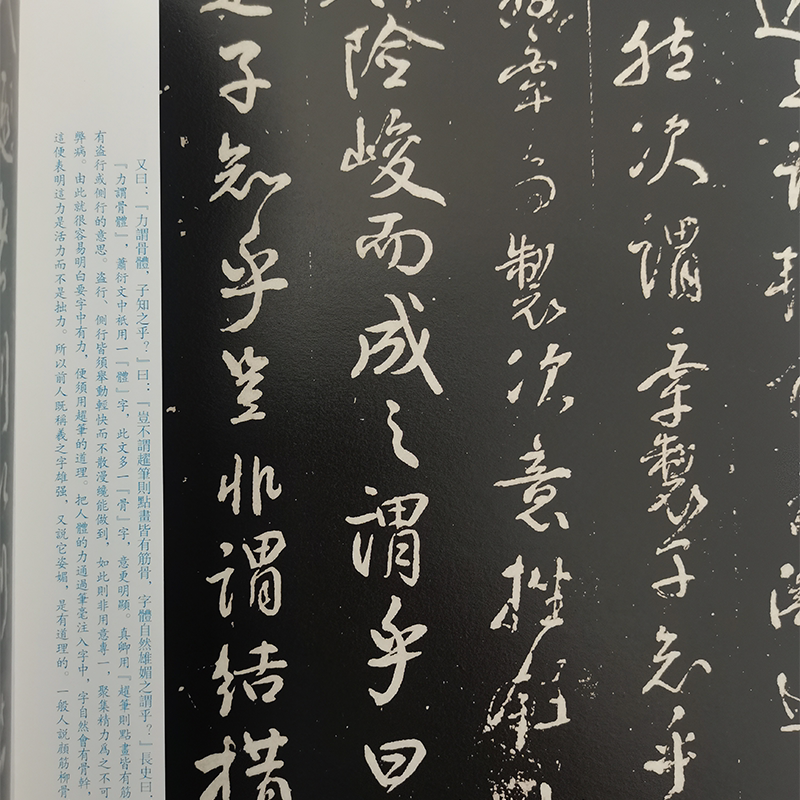 次謂牽製子知乎
牽為製次意挫鋒
險峻而成之謂乎曰
子知乎豈非謂結
又曰:『力謂骨體,子知之乎?』曰:『豈不謂趯筆則點畫皆有筋骨,字體自然雄媚之謂乎?』長史曰:
『力謂骨體』,蕭衍文中衹用一『體』字,此文多一『骨』字,意更明顯。真卿用『趯筆則點畫皆有筋
有盜行或側行的意思。盜行、側行皆須舉動輕快而不散漫纔能做到,如此則非用意專一,聚集精力爲之不可
弊病。由此就很容易明白要字中有力,便須用趯筆的道理。把人體的力通過筆毫注入字中,字自然會有骨幹,
這便表明這力是活力而不是拙力。所以前人既稱羲之字雄强,又說它姿媚,是有道理的。一般人說顔筋柳骨